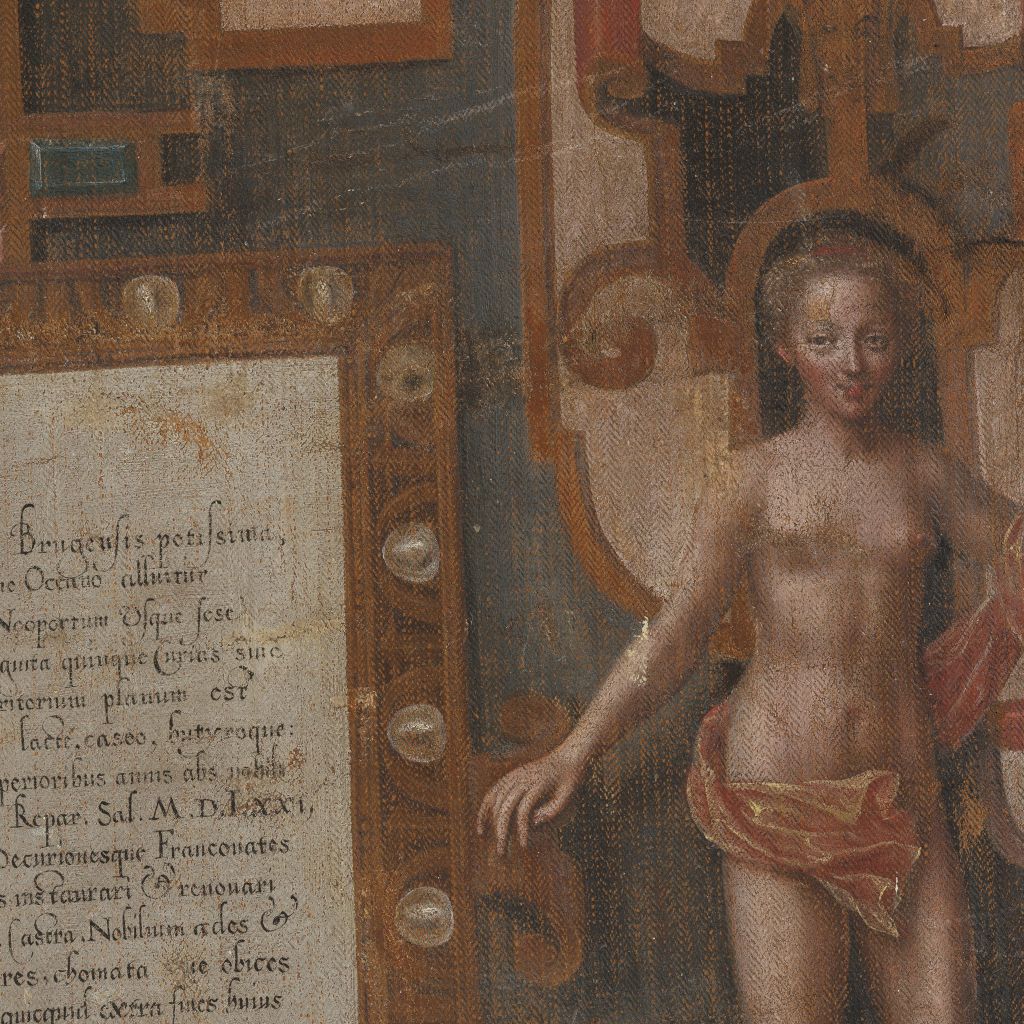 Brugensis potissima,
Oceano alluitur
Neoportum Usque sese
quinque Curias sine
planum est
lacte, caseo, butyroque:
perioribus annis abs nobili
Repar. Sal. M.D.LXXI,
Decurionesque Franconates
instaurari & renouari
Castra, Nobilium ædes &
res, chomata obices
quicquid extra fines huius